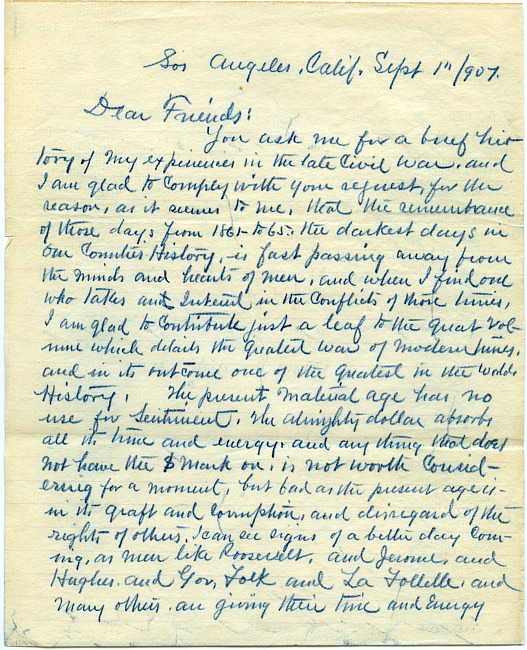 Los Angeles, Calif, Sept 1st/907.
Dear Friends:
You ask me for a brief his-
tory of my experiences in the late Civil War, and
I am glad to comply with your request, for the
reason, as it seems to me, that the remembrance
of those days from 1861 to 65, the darkest days in
our Countries History, is fast passing away from
the minds and hearts of men, and when I find one
who takes an Interest in the Conflicts of those times,
I am glad to Contribute just a leaf to the great Vol-
ume which details the greatest war of modern times,
and in its outcome one of the greatest in the Worlds
History. The present material age has no
use for Sentiment. The almighty dollar absorbs
all its time and energy, and any thing that does
not have the $ mark on, is not worth Consid-
ering for a moment, but bad as the present age is
in its graft and corruption, and disregard of the
rights of others, I can see signs of a better day Com-
ing, as men like Roosevelt, and Jerome, and
Hughes, and Gov, Folk and La Follette, and
many others, are giving their time and Energy